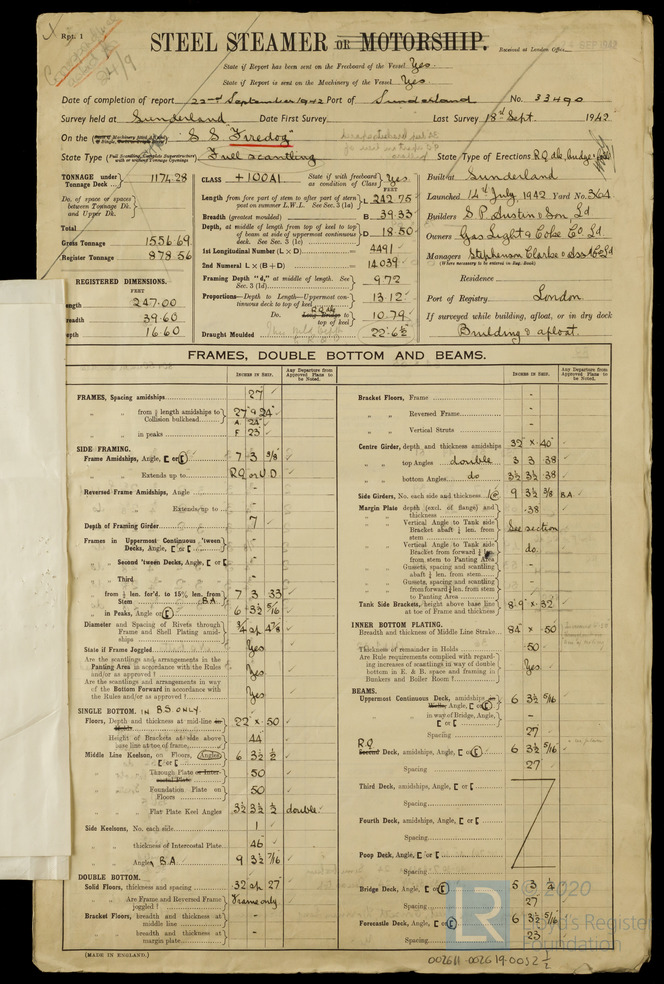 Rpt. 1
STEEL STEAMER OR MOTORSHIP.
Received at London Office
SEP 1942
State if Report has been sent on the Freeboard of the Vessel Yes
State if Report is sent on the Machinery of the Vessel Yes
24/9
Date of completion of report 22nd September 1942 Port of Sunderland No. 33490
Survey held at Sunderland Date First Survey Last Survey 18th Sept. 1942
On the S.S. "Firedog"
State Type Full scantling State Type of Erections R.Q. dk, bridge,
TONNAGE under Tonnage Deck 1174.28
CLASS +100A1 State if with freeboard as condition of Class Yes
Built at Sunderland
Launched 14th July, 1942 Yard No. 364
Builders S. P. Austin & Son, Ld
Owners Gas Light & Coke Co. Ld
Managers Stephenson Clarke & Ass. C. Ld
(Where necessary to be entered in Reg. Book)
Residence
Port of Registry London
If surveyed while building, afloat, or in dry dock
Building & afloat.
No. of space or spaces between Tonnage Dk. and Upper Dk.
Total
Gross Tonnage 1556.69
Register Tonnage 878.56
REGISTERED DIMENSIONS.
FEET
ength 247.00
readth 39.60
epth 16.60
FEET
Length from fore part of stem to after part of stern post on summer L.W.L. See Sec. 3 (1a) L 242.75
Breadth (greatest moulded) B 39.33
Depth, at middle of length from top of keel to top of beam at side of uppermost continuous deck. See Sec. 3 (1c) D 18.50
1st Longitudinal Number (L × D) 4491
2nd Numeral L × (B + D) 14039
Framing Depth "d," at middle of length. See Sec. 3 (1d) 9.72
Proportions—Depth to Length—Uppermost continuous deck to top of keel 13.12
Do. R.Q. dk. Long Bridge to top of keel 10.79
Draught Moulded 22'-6½"
FRAMES, DOUBLE BOTTOM AND BEAMS.
INCHES IN SHIP.
Any Departure from Approved Plans to be Noted.
FRAMES, Spacing amidships 27
" " from ⅗ length amidships to Collision bulkhead 27" & 24"
" " in peaks A. 24" F 23"
SIDE FRAMING.
Frame Amidships, Angle, [ or [ 7 3 3/8
" " Extends up to R.Q. or U.D
Reversed Frame Amidships, Angle -
" " Extends up to -
Depth of Framing Girder 7
Frames in Uppermost Continuous 'tween Decks, Angle, [ or [ -
" Second 'tween Decks, Angle, [ or [ -
" Third " " " " -
" from ⅕ len. for'd. to 15% len. from Stem B.A. 7 3 33
" in Peaks, Angle or [ 6 3½ 5/16
Diameter and Spacing of Rivets through Frame and Shell Plating amidships 3/4 sp 4 7/8
State if Frame Joggled Yes
Are the scantlings and arrangements in the Panting Area in accordance with the Rules and/or as approved? Yes
Are the scantlings and arrangements in way of the Bottom Forward in accordance with the Rules and/or as approved? Yes
SINGLE BOTTOM. IN B.S ONLY.
Floors, Depth and thickness at mid-line in Holds 22" x .50
" Height of Brackets at side above base line at toe of frame 44"
Middle Line Keelson, on Floors, Angles, [ or [ 6 3½ ½
" " Through Plate or Intercostal Plate 50
" " Foundation Plate on Floors 50
" " Flat Plate Keel Angles 3½ 3½ ½ double.
Side Keelsons, No. each side 1
" " thickness of Intercostal Plate 46
" " Angles B.A. 9 3½ 7/16
DOUBLE BOTTOM.
Solid Floors, thickness and spacing 32 sp 27
" Are Frame and Reversed Frame joggled? Frame only
Bracket Floors, breadth and thickness at middle line -
" breadth and thickness at margin plate -
(MADE IN ENGLAND.)
INCHES IN SHIP.
Any Departure from Approved Plans to be Noted.
Bracket Floors, Frame -
" " Reversed Frame -
" " Vertical Struts -
Centre Girder, depth and thickness amidships 32" x .40"
" " top Angles double 3 3 .38
" " bottom Angles do 3½ 3½ .38
Side Girders, No. each side and thickness 1 @ 9 3½ 3/8 B.A
Margin Plate depth (excl. of flange) and thickness .38
" Vertical Angle to Tank side Bracket abaft ¼ len. from stem See section
" Vertical Angle to Tank side Bracket from forward ¼ len. from stem to Panting Area do.
" Gussets, spacing and scantling abaft ¼ len. from stem -
" Gussets, spacing and scantling from forward ¼ len. from stem to Panting Area -
Tank Side Brackets, height above base line at toe of Frame and thickness 8'-9" x .32"
INNER BOTTOM PLATING.
Breadth and thickness of Middle Line Strake 84" x .50
Thickness of remainder in Holds .50
Are Rule requirements complied with regarding increases of scantlings in way of double bottom in E. & B. space and framing in Bunkers and Boiler Room? Yes
BEAMS.
Uppermost Continuous Deck, amidships, in Wells, Angle, [ or [ 6 3½ 5/16
" in way of Bridge, Angle, [ or [ -
" Spacing 27
R.Q
Second Deck, amidships, Angle, [ or [ 6 3½ 5/16
Spacing 27
Third Deck, amidships, Angle, [ or [
Spacing
Fourth Deck, amidships, Angle, [ or [
Spacing
Poop Deck, Angle, [ or [
Spacing
Bridge Deck, Angle, [ or [ 5 3 ¼
Spacing 27
Forecastle Deck, Angle, [ or [ 6 3½ 5/16
Spacing 23
© 2020
LR
Lloyd's Register
Foundation
002611-002619-0052 ½